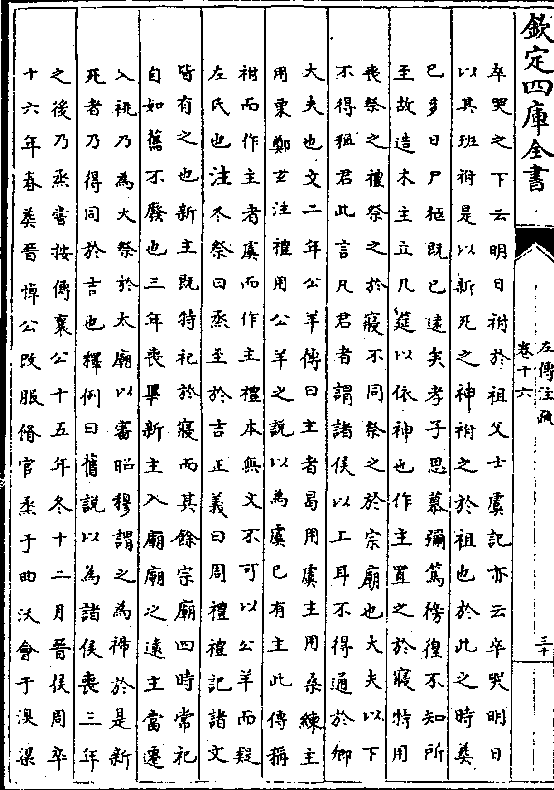 欽定四庫全書
左傳注疏
卷十六
三十
卒哭之下云明日祔於祖父士虞記亦云卒哭明日
以其班祔是以新死之神祔之於祖也於此之時葬
已多日尸柩既已遠矣孝子思慕彌篤徬徨不知所
至故造木主立几筵以依神也作主置之於寢特用
喪祭之禮祭之於寢不同祭之於宗廟也大夫以下
不得稱君此言凡君者謂諸侯以上耳不得通於卿
大夫也文二年公羊傳曰主者曷用虞主用桑練主
用栗鄭玄注禮用公羊之說以為虞已有主此傳稱
祔而作主者虞而作主禮本無文不可以公羊而疑
左氏也注冬祭曰烝至於吉正義曰周禮禮記諸文
皆有之也新主既特祀於寢而其餘宗廟四時常祀
自如舊不廢也三年喪畢新主入廟廟之遠主當遷
入祧乃為大祭於太廟以審昭穆謂之為禘於是新
死者乃得同於吉也釋例曰舊說以為諸侯喪三年
之後乃烝嘗按傳襄公十五年冬十二月晉侯周卒
十六年春葬晉悼公改服脩官烝于曲沃會于溴梁